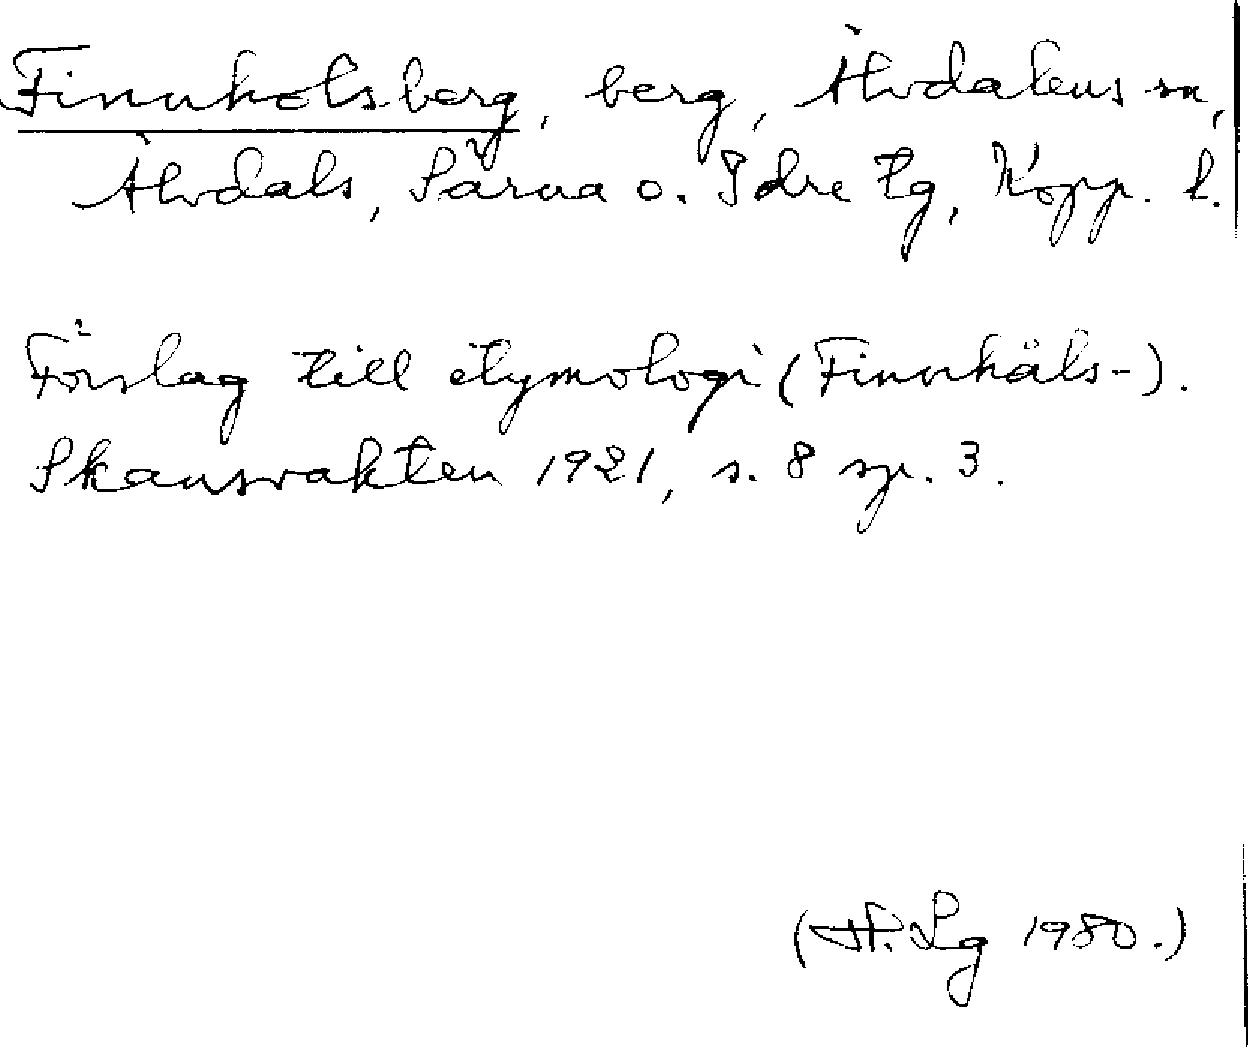 Finnholsberg, berg, Älvdalens sn,
Älvdals, Särna o. Idre tg, Kopp. l.
Förslag till etymologi (Finnhåls-).
Skansvakten 1921, s. 8 sp. 3.
Lg 1980.)